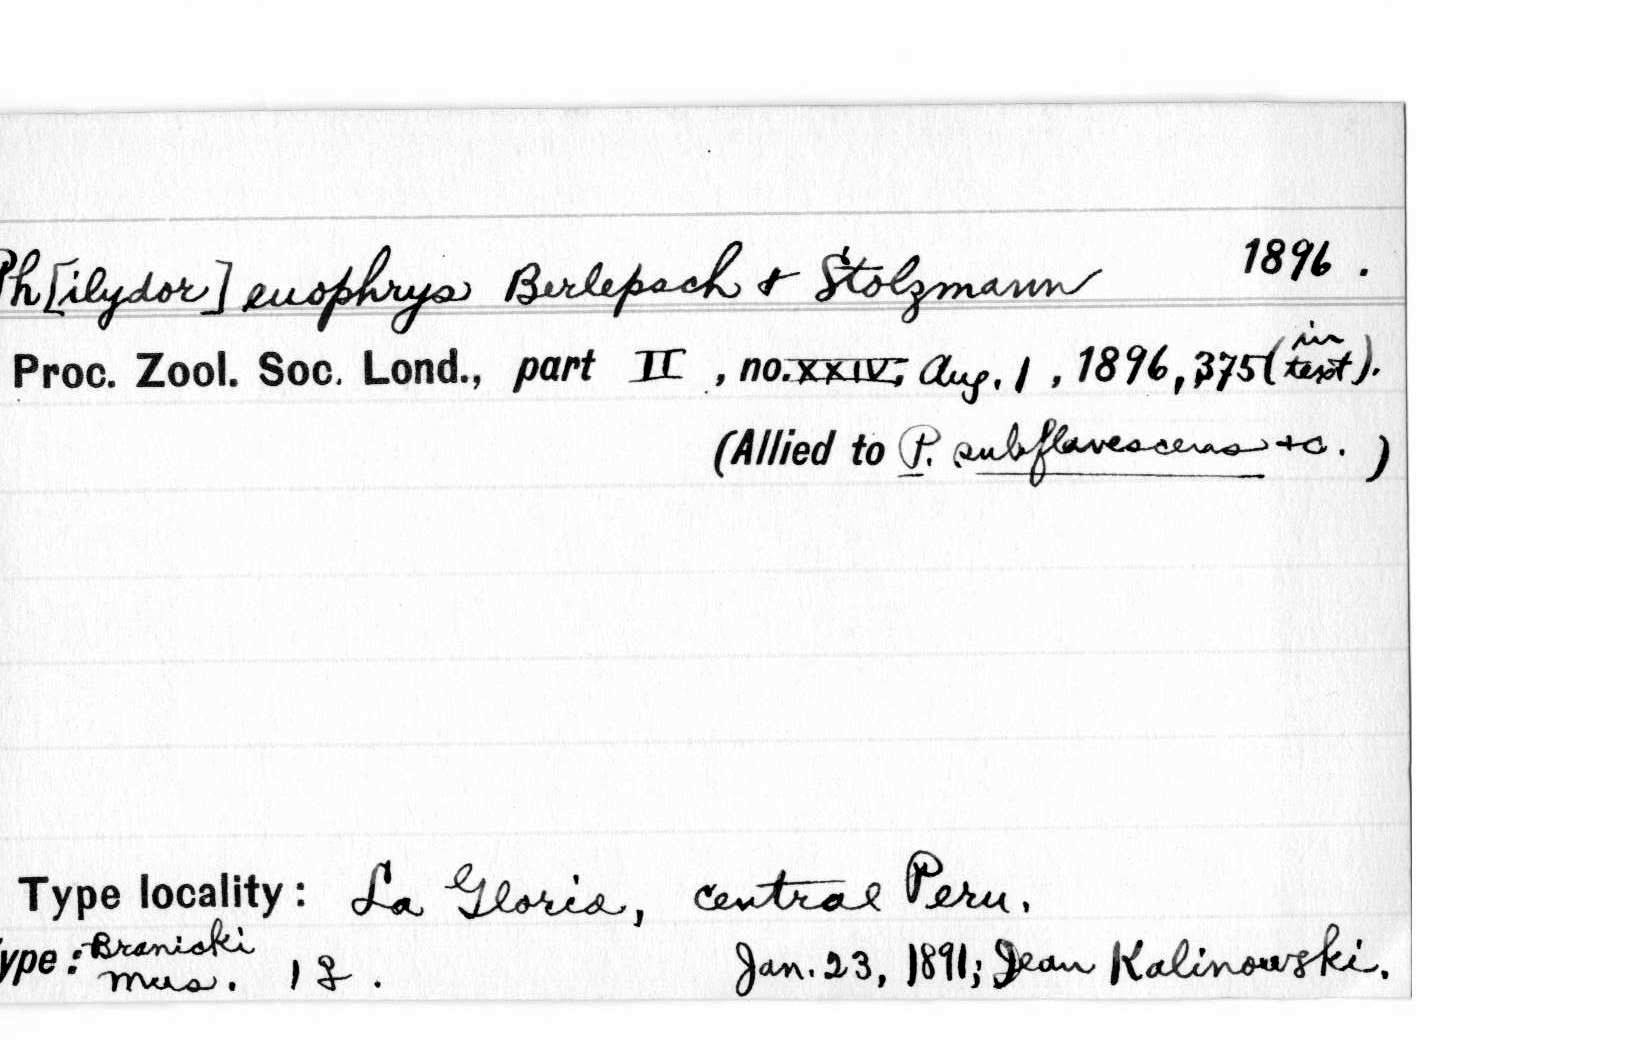 Ph[ilydor] euophrys Berlepsch & Stolzmann 1896.
Proc. Zool. Soc. Lond., part II, no. XXIV, Aug. 1, 1896, 375 (in text).
(Allied to P. subflavescens &c.)
Type locality: La Gloria, central Peru.
ype: Branicki Mus. 1 ♀. Jan. 23, 1891; Jean Kalinowski.